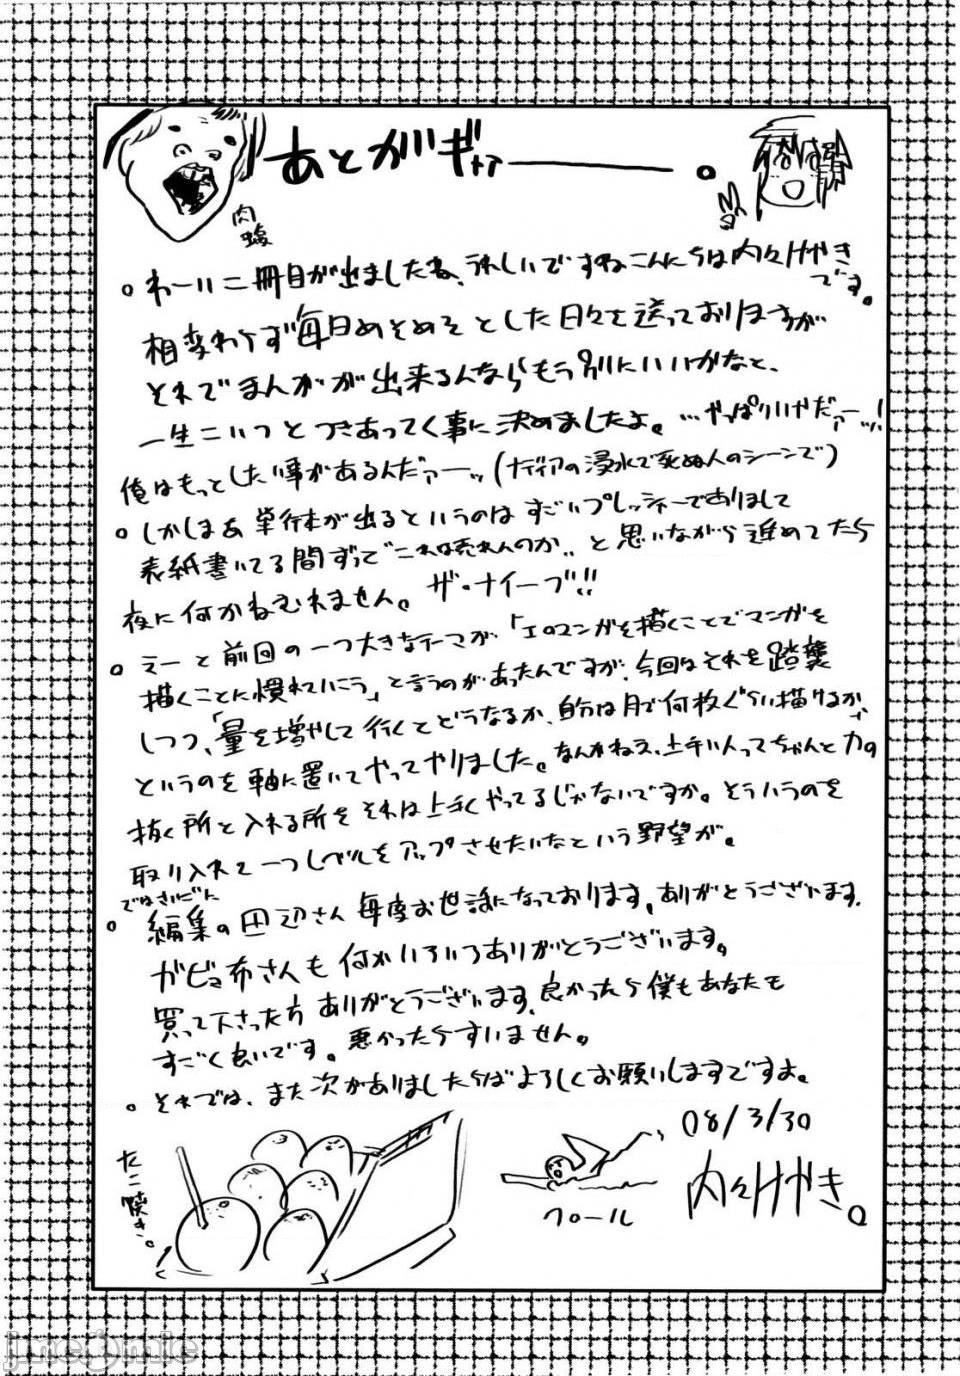 あとがギャアーーー。
肉蝮
。わーい二冊目が出ましたね、うれしいですねこんにちは内々けやきです。
相変わらず毎日めそめそとした日々を送っておりますが
それでまんがが出来るんならもう別にいいかなと、
一生こいつとつきあってく事に決めましたよ。…やっぱりいやだァーッ!
俺はもっとしたい事があるんだァーッ(ナディアの浸水で死ぬ人のシーンで)
。しかしまあ単行本が出るというのはすごいプレッシャーでありまして
表紙書いてる間ずっで“これは売れんのか..と思いながら進めてたら
夜に何かねむれません。ザ・ナイーブ!!
。えーと前回の一つ大きなテーマが、「エロマンガを描くことでマンガを
描くことに慣れていこう」と言うのがあったんですが、今回はそれを踏襲
しつつ、「量を増やして行くとどうなるか、自分は月で何枚ぐらい描けるか」
というのを軸に置いてやってやりました。なんかねえ、上手い人ってちゃんと力の
抜く所と入れる所をそれは上手くやってるじゃないですか。そういうのを
取り入れて一つレベルをアップさせたいなという野望が。
ではさいごに
。編集の田辺さん毎度お世話になっております。ありがとうございます。
ガビョ布さんも何かいろいろありがとうございます。
買って下さった方ありがとうございます。良かったら僕もあなたも
すごく良いです。悪かったらすいません。
。それでは、また次がありましたらばよろしくお願いしますですよ。
たこ焼き。
クロール
08/3/30
内々けやき。
jnc3mic